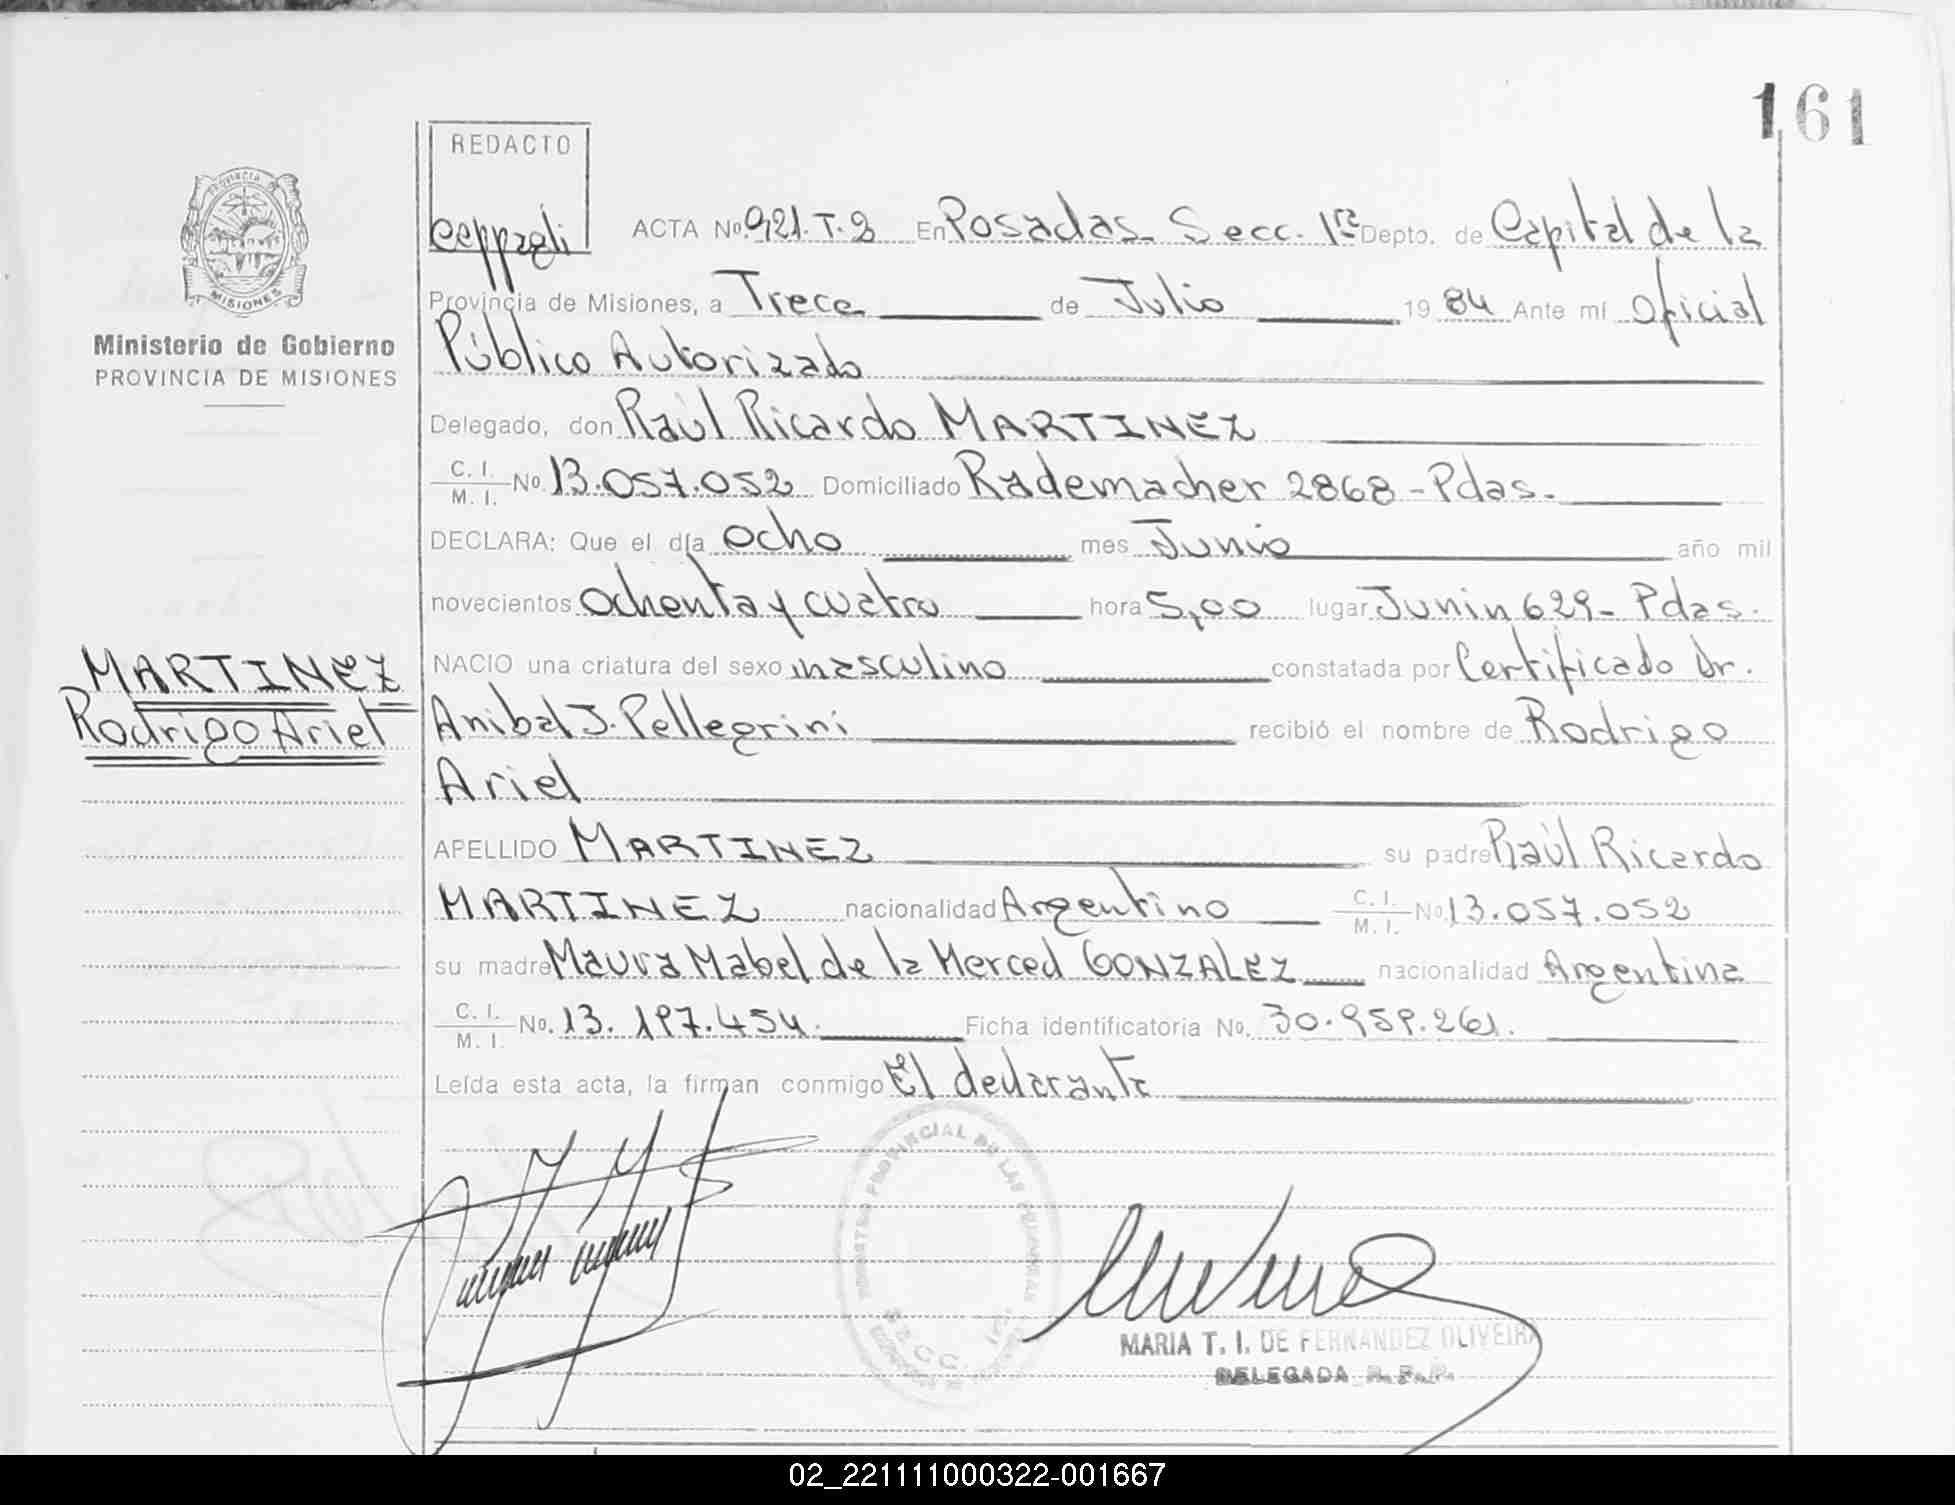 161
REDACTO
PROVINCIA DE
MISIONES
Ministerio de Gobierno
PROVINCIA DE MISIONES
ACTA No. 921.T.2 En Posadas Secc. 1ra Depto. de Capital de la
Provincia de Misiones, a Trece de Julio 1984 Ante mí Oficial
Público Autorizado
Delegado, don Raúl Ricardo MARTINEZ
C. I. M. I. No. 13.057.052 Domiciliado Rademacher 2868 - Pdas.
DECLARA: Que el día ocho mes Junio año mil
novecientos ochenta y cuatro hora 5,00 lugar Junin 629 - Pdas.
NACIO una criatura del sexo masculino constatada por Certificado Dr.
MARTINEZ
Rodrigo Ariel
Anibal J. Pellegrini recibió el nombre de Rodrigo
Ariel
APELLIDO MARTINEZ su padre Raúl Ricardo
MARTINEZ nacionalidad Argentino C. I. M. I. No. 13.057.052
su madre Maura Mabel de la Merced GONZALEZ nacionalidad Argentina
C. I. M. I. No. 13.197.454. Ficha identificatoria No. 30.959.261.
Leída esta acta, la firman conmigo El declarante
PROVINCIAL DE LAS PERSONAS
SECC
MARIA T. I. DE FERNANDEZ OLIVEIRA
DELEGADA R. P. P.
02_221111000322-001667